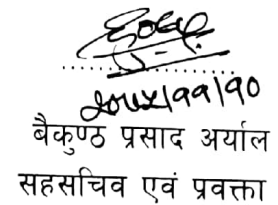 २०७५/११/१०
बैकुण्ठ प्रसाद अर्याल
सहसचिव एवं प्रवक्ता